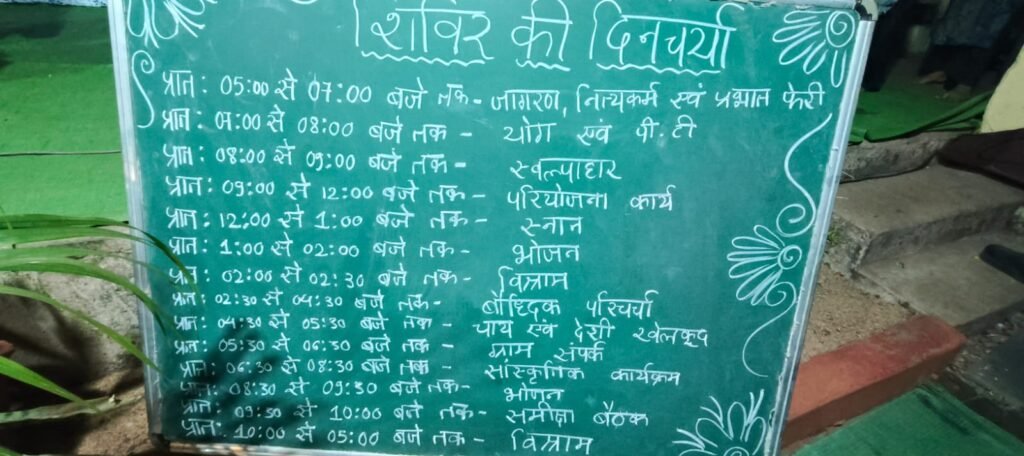 शिविर की दिनचर्या
प्रात: 05:00 से 07:00 बजे तक - जागरण, नित्यकर्म एवं प्रभात फेरी
प्रात: 07:00 से 08:00 बजे तक - योग एवं पी.टी
प्रात: 08:00 से 09:00 बजे तक - स्वल्पाहार
प्रात: 09:00 से 12:00 बजे तक - परियोजना कार्य
प्रात: 12:00 से 1:00 बजे तक - स्नान
प्रात: 1:00 से 02:00 बजे तक - भोजन
प्रात: 02:00 से 02:30 बजे तक - विश्राम
प्रात: 02:30 से 04:30 बजे तक - बौध्दिक परिचर्चा
प्रात: 04:30 से 05:30 बजे तक - चाय एवं देशी खेलकूद
प्रात: 05:30 से 06:30 बजे तक - ग्राम संपर्क
प्रात: 06:30 से 08:30 बजे तक - सांस्कृतिक कार्यक्रम
प्रात: 08:30 से 09:30 बजे तक - भोजन
प्रात: 09:30 से 10:00 बजे तक - समीक्षा बैठक
प्रात: 10:00 से 05:00 बजे तक - विश्राम